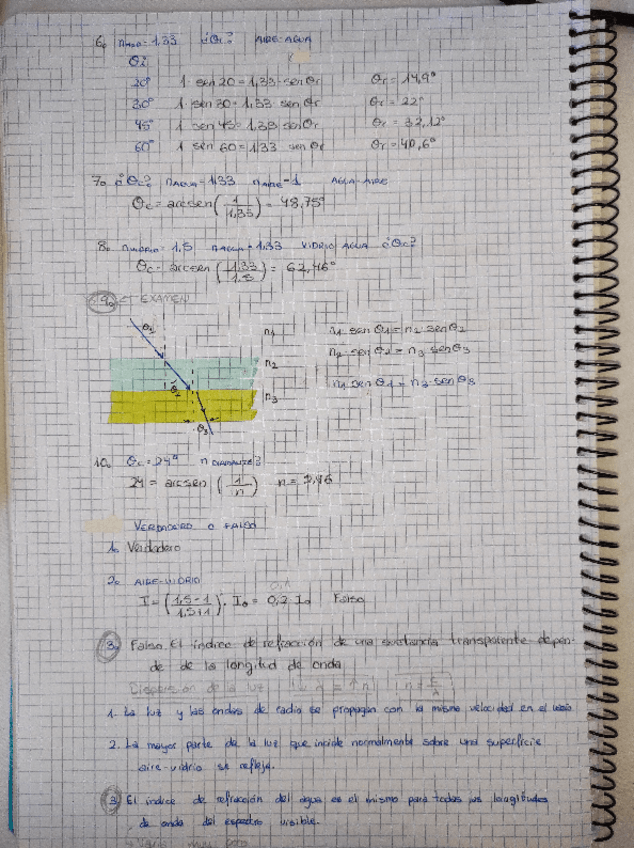 6. n_AGUA = 1,33 ¿θr? AIRE-AGUA
θi
20° 1 · sen 20 = 1,33 · sen θr θr = 14,9°
30° 1 · sen 30 = 1,33 sen θr θr = 22°
45° 1 sen 45 = 1,33 senθr θr = 32,12°
60° 1 sen 60 = 1,33 sen θr θr = 40,6°
7. ¿θc? n_AGUA = 1,33 n_AIRE = 1 AGUA-AIRE
θc = arcsen (1/1,33) = 48,75°
8. n_VIDRIO = 1,5 n_AGUA = 1,33 VIDRIO AGUA ¿θc?
θc = arcsen (1,33/1,5) = 62,46°
EXAMEN
θ1 n1 n1 sen θ1 = n2 · senθ2
n2 n2 · sen θ2 = n3 senθ3
θ2 n3 n1 sen θ1 = n3 · senθ3
θ3
10. θc = 24° n DIAMANTE?
24 = arcsen (1/n) n = 2,46
VERDADERO O FALSO
1. Verdadero
2. AIRE-VIDRIO
I = (1,5-1/1,5+1) · I₀ = 0,2 I₀ Falso
3. Falso. El índice de refracción de una sustancia transparente depen-
de de la longitud de onda
Dispersión de la luz
1. La luz y las ondas de radio se propagan con la misma velocidad en el vacío
2. La mayor parte de la luz que incide normalmente sobre una superficie
aire-vidrio se refleja.
3. El índice de refracción del agua es el mismo para todas las longitudes
de onda del espectro visible.